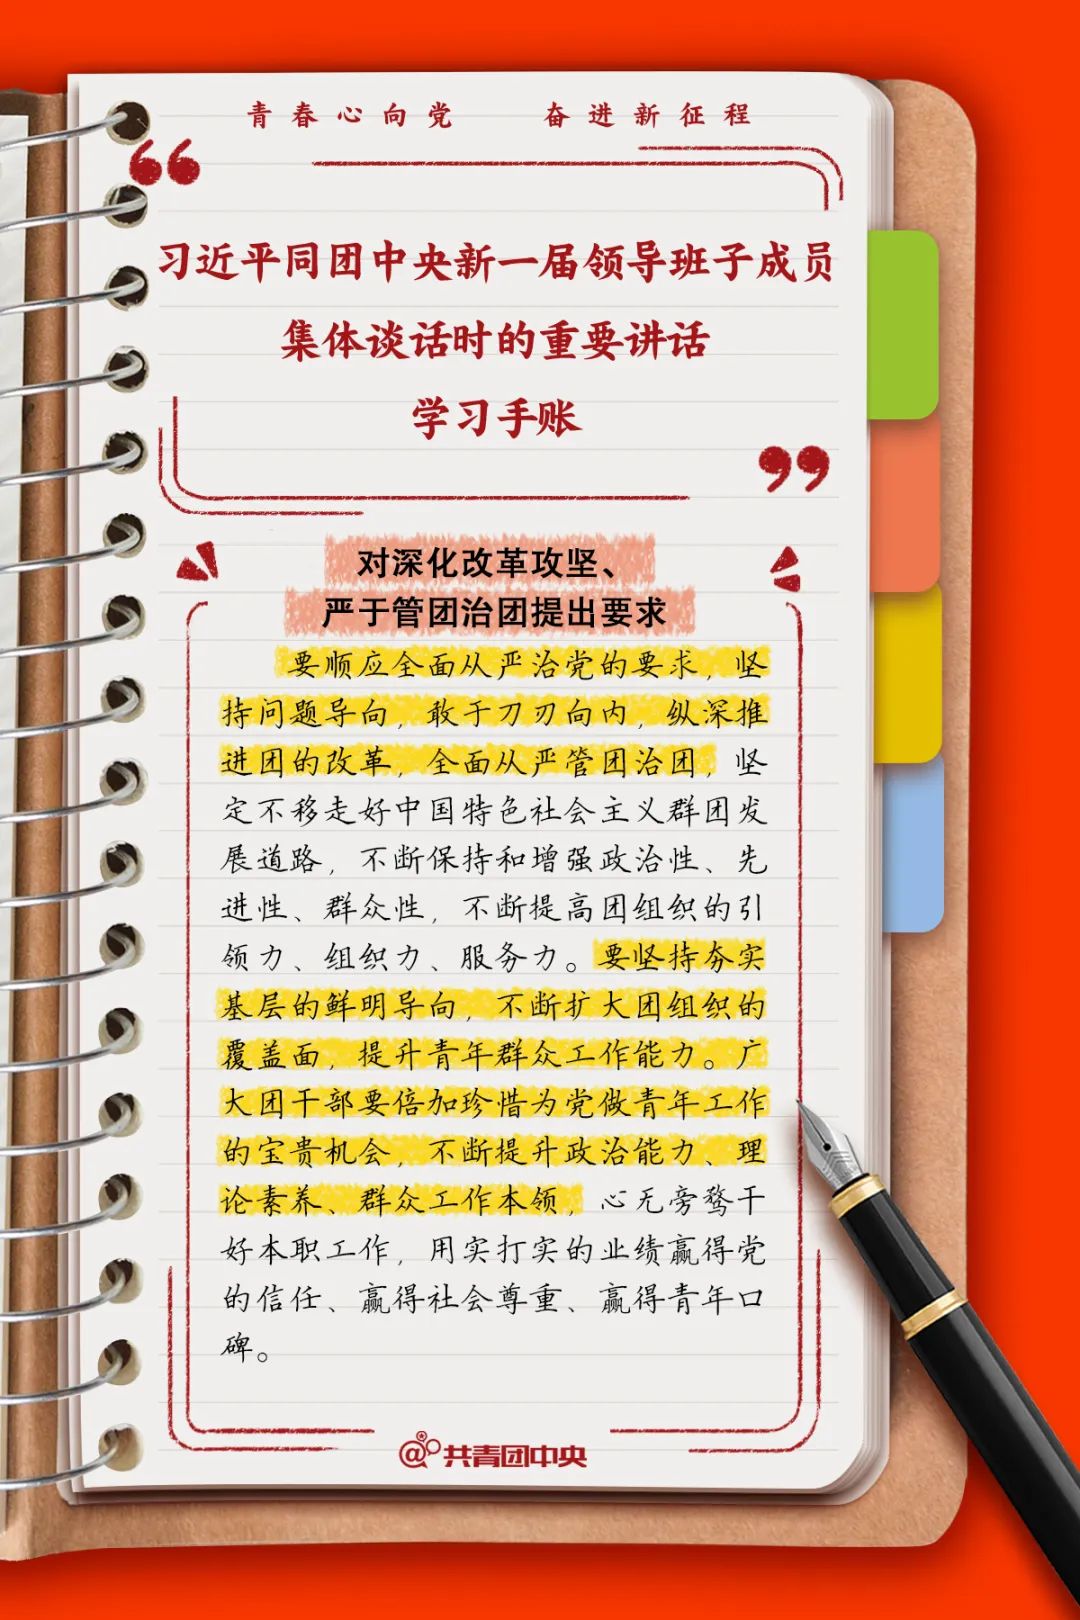 青春心向党 奋进新征程
习近平同团中央新一届领导班子成员
集体谈话时的重要讲话
学习手账
对深化改革攻坚、
严于管团治团提出要求
要顺应全面从严治党的要求，坚
持问题导向，敢于刀刃向内，纵深推
进团的改革，全面从严管团治团，坚
定不移走好中国特色社会主义群团发
展道路，不断保持和增强政治性、先
进性、群众性，不断提高团组织的引
领力、组织力、服务力。要坚持夯实
基层的鲜明导向，不断扩大团组织的
覆盖面，提升青年群众工作能力。广
大团干部要倍加珍惜为党做青年工作
的宝贵机会，不断提升政治能力、理
论素养、群众工作本领，心无旁骛干
好本职工作，用实打实的业绩赢得党
的信任、赢得社会尊重、赢得青年口
碑。
@共青团中央